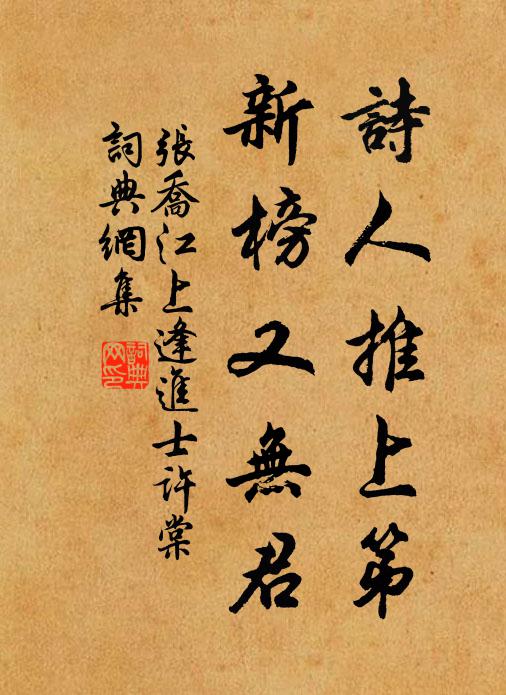 詩人推上第
新榜又無君
張喬江上逢進士許棠
詞典網集
詞典
网印